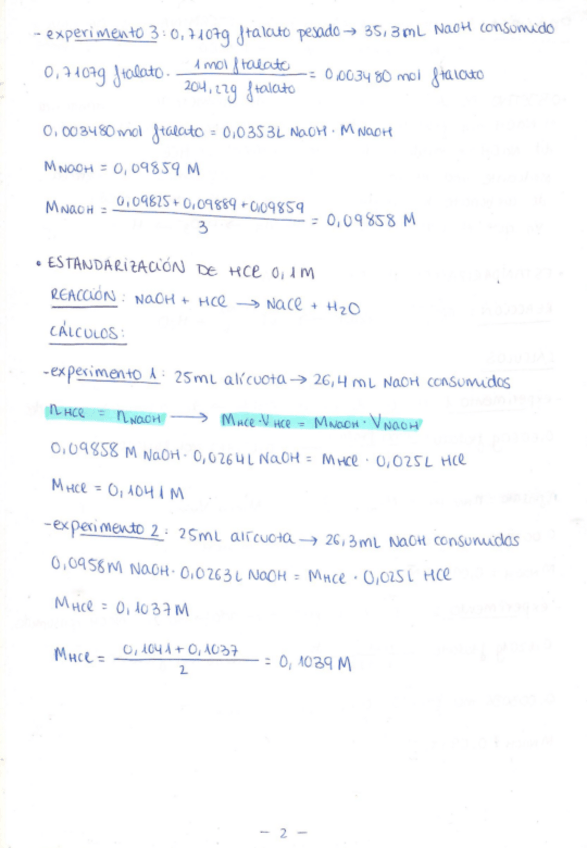 - experimento 3: 0,7107g ftalato pesado → 35,3mL NaOH consumido
0,7107g ftalato · 1 mol ftalato / 204,22g ftalato = 0,003480 mol ftalato
0,003480 mol ftalato = 0,0353L NaOH · M NaOH
M NaOH = 0,09859 M
M NaOH = 0,09825 + 0,09889 + 0,09859 / 3 = 0,09858 M
• ESTANDARIZACIÓN DE HCl 0,1M
REACCIÓN: NaOH + HCl → NaCl + H2O
CÁLCULOS:
- experimento 1: 25mL alícuota → 26,4 mL NaOH consumidos
n HCl = n NaOH → M HCl · V HCl = M NaOH · V NaOH
0,09858 M NaOH · 0,0264L NaOH = M HCl · 0,025L HCl
M HCl = 0,1041 M
- experimento 2: 25mL alícuota → 26,3mL NaOH consumidos
0,0958M NaOH · 0,0263L NaOH = M HCl · 0,025L HCl
M HCl = 0,1037 M
M HCl = 0,1041 + 0,1037 / 2 = 0,1039 M
- 2 -